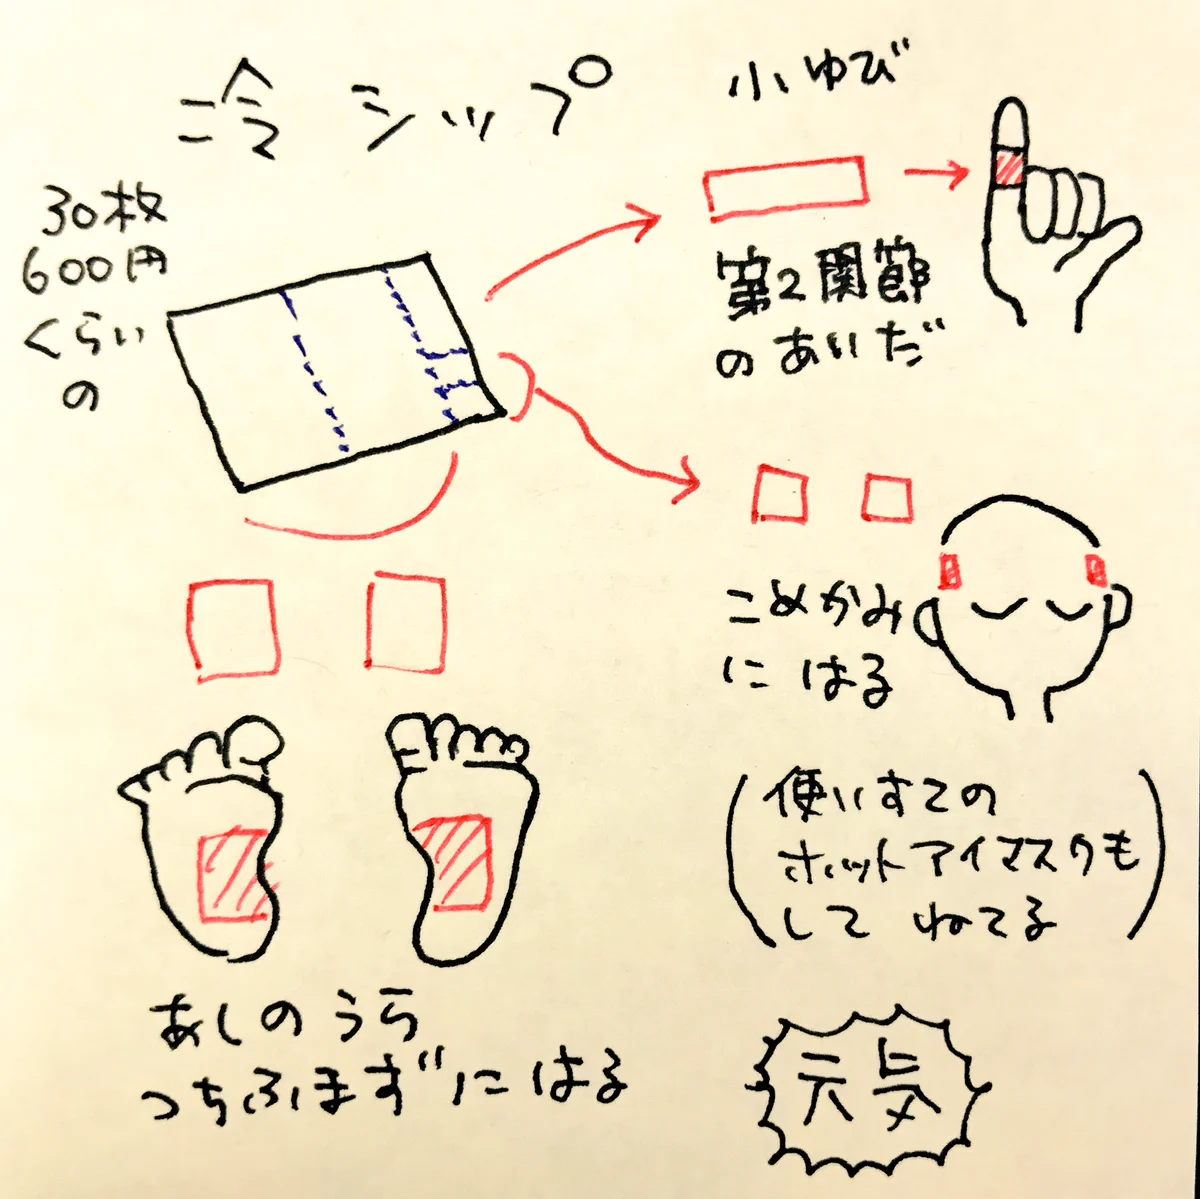 冷シップ
30枚
600円
くらい
の
小ゆび
第2関節
のあいだ
こめかみ
にはる
(使いすての
ホットアイマスクも
してねてる)
あしのうら
つちふまずにはる
元気